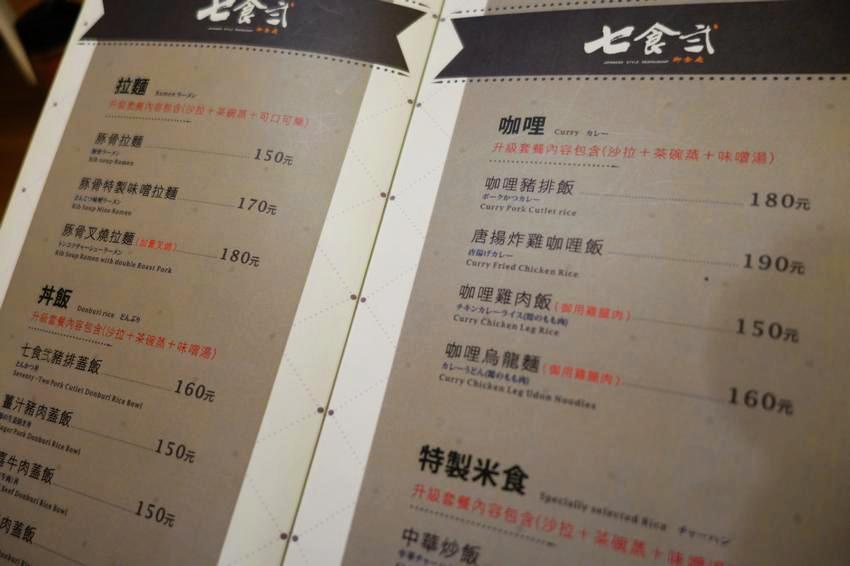 七食弎
JAPANESE STYLE RESTAURANT 御食處
拉麵 Ramen ラーメン
升級套餐內容包含(沙拉+茶碗蒸+可口可樂)
豚骨拉麵 150元
豚骨ラーメン
Rib soup Ramen
豚骨特製味噌拉麵 170元
とんこつ味噌ラーメン
Rib Soup Miso Ramen
豚骨叉燒拉麵(加量叉燒) 180元
トンコツチャーシューラーメン
Rib Soup Ramen with double Roast Pork
丼飯 Donburi rice どんぶり
升級套餐內容包含(沙拉+茶碗蒸+味噌湯)
七食弎豬排蓋飯 160元
とんかつ丼
Seventy-Two Pork Cutlet Donburi Rice Bowl
薑汁豬肉蓋飯 150元
Pork Donburi Rice Bowl
牛肉蓋飯 150元
Beef Donburi Rice Bowl
肉蓋飯
七食弎
JAPANESE STYLE RESTAURANT 御食處
咖哩 Curry カレー
升級套餐內容包含(沙拉+茶碗蒸+味噌湯)
咖哩豬排飯 180元
ポークかつカレー
Curry Pork Cutlet rice
唐揚炸雞咖哩飯 190元
唐揚げカレー
Curry Fried Chicken Rice
咖哩雞肉飯(御用雞腿肉) 150元
チキンカレーライス(鶏のもも肉)
Curry Chicken Leg Rice
咖哩烏龍麵(御用雞腿肉) 160元
カレーうどん(鶏のもも肉)
Curry Chicken Leg Udon Noodles
特製米食 Specially selected Rice チャーハン
升級套餐內容包含(沙拉+茶碗蒸+味噌湯
中華炒飯